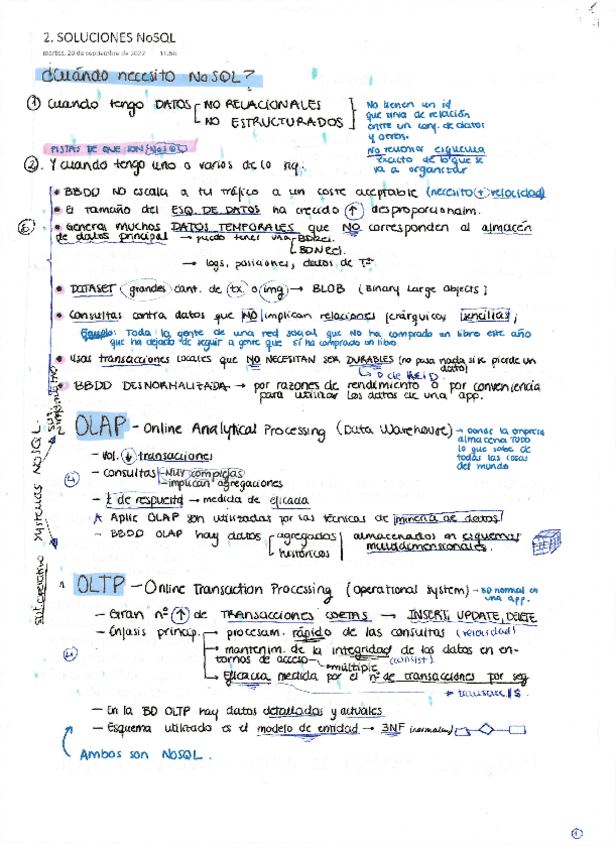 2. SOLUCIONES NoSQL
martes, 20 de septiembre de 2022
¿Cuándo necesito NoSQL?
① Cuando tengo DATOS NO RELACIONALES
NO ESTRUCTURADOS
No tienen un id
que sirva de relación
entre un conj. de datos
y otros.
esquema
exacto de lo que se
va a organizar
PISTAS DE QUE SON NoSQL
②. Y cuando tengo uno o varios de lo sig.
• BBDD NO escala a tu tráfico a un coste aceptable (necesito + velocidad)
• El tamaño del ESQ. DE DATOS ha crecido ↑ desproporcionam.
• Generas muchos DATOS TEMPORALES que NO corresponden al almacén
de datos principal → puedo tener una
→ logs, posiciones, datos de
• DATASET grandes cant. de tx. o img → BLOB (Binary Large Objects)
• Consultas contra datos que NO implican relaciones jerárquicas sencillas;
Ejemplo: Toda la gente de una red social que no ha comprado un libro este año
que ha dejado de seguir a gente que sí ha comprado un libro
• Usas transacciones locales que NO NECESITAN SER DURABLES (no pasa nada si se pierde un
dato)
D de ACID
• BBDD DESNORMALIZADA → por razones de rendimiento o por conveniencia
para utilizar los datos de una app.
OLAP - Online Analytical Processing (Data Warehouse) → Donde la empresa
almacena TODO
lo que sabe de
todas las cosas
del mundo
- Vol. ↓ transacciones
- Consultas muy complejas
implican agregaciones
- t de respuesta → medida de eficacia
Aplic OLAP son utilizadas por las técnicas de minería de datos
- BBDD OLAP hay datos agregados
históricos
almacenados en esquemas
multidimensionales.
sistemas NoSQL
OLTP - Online Transaction Processing (operational system) → BD normal en
una app.
- Gran nº ↑ de TRANSACCIONES CORTAS → INSERT, UPDATE, DELETE
- Énfasis princip. → procesam. rápido de las consultas (velocidad)
→ mantenim. de la integridad de los datos en en-
tornos de acceso múltiple (consist.)
→ Eficacia medida por el nº de transacciones por seg
- En la BD OLTP hay datos detallados y actuales
- Esquema utilizado es el modelo de entidad → 3NF
Ambos son NoSQL.
①